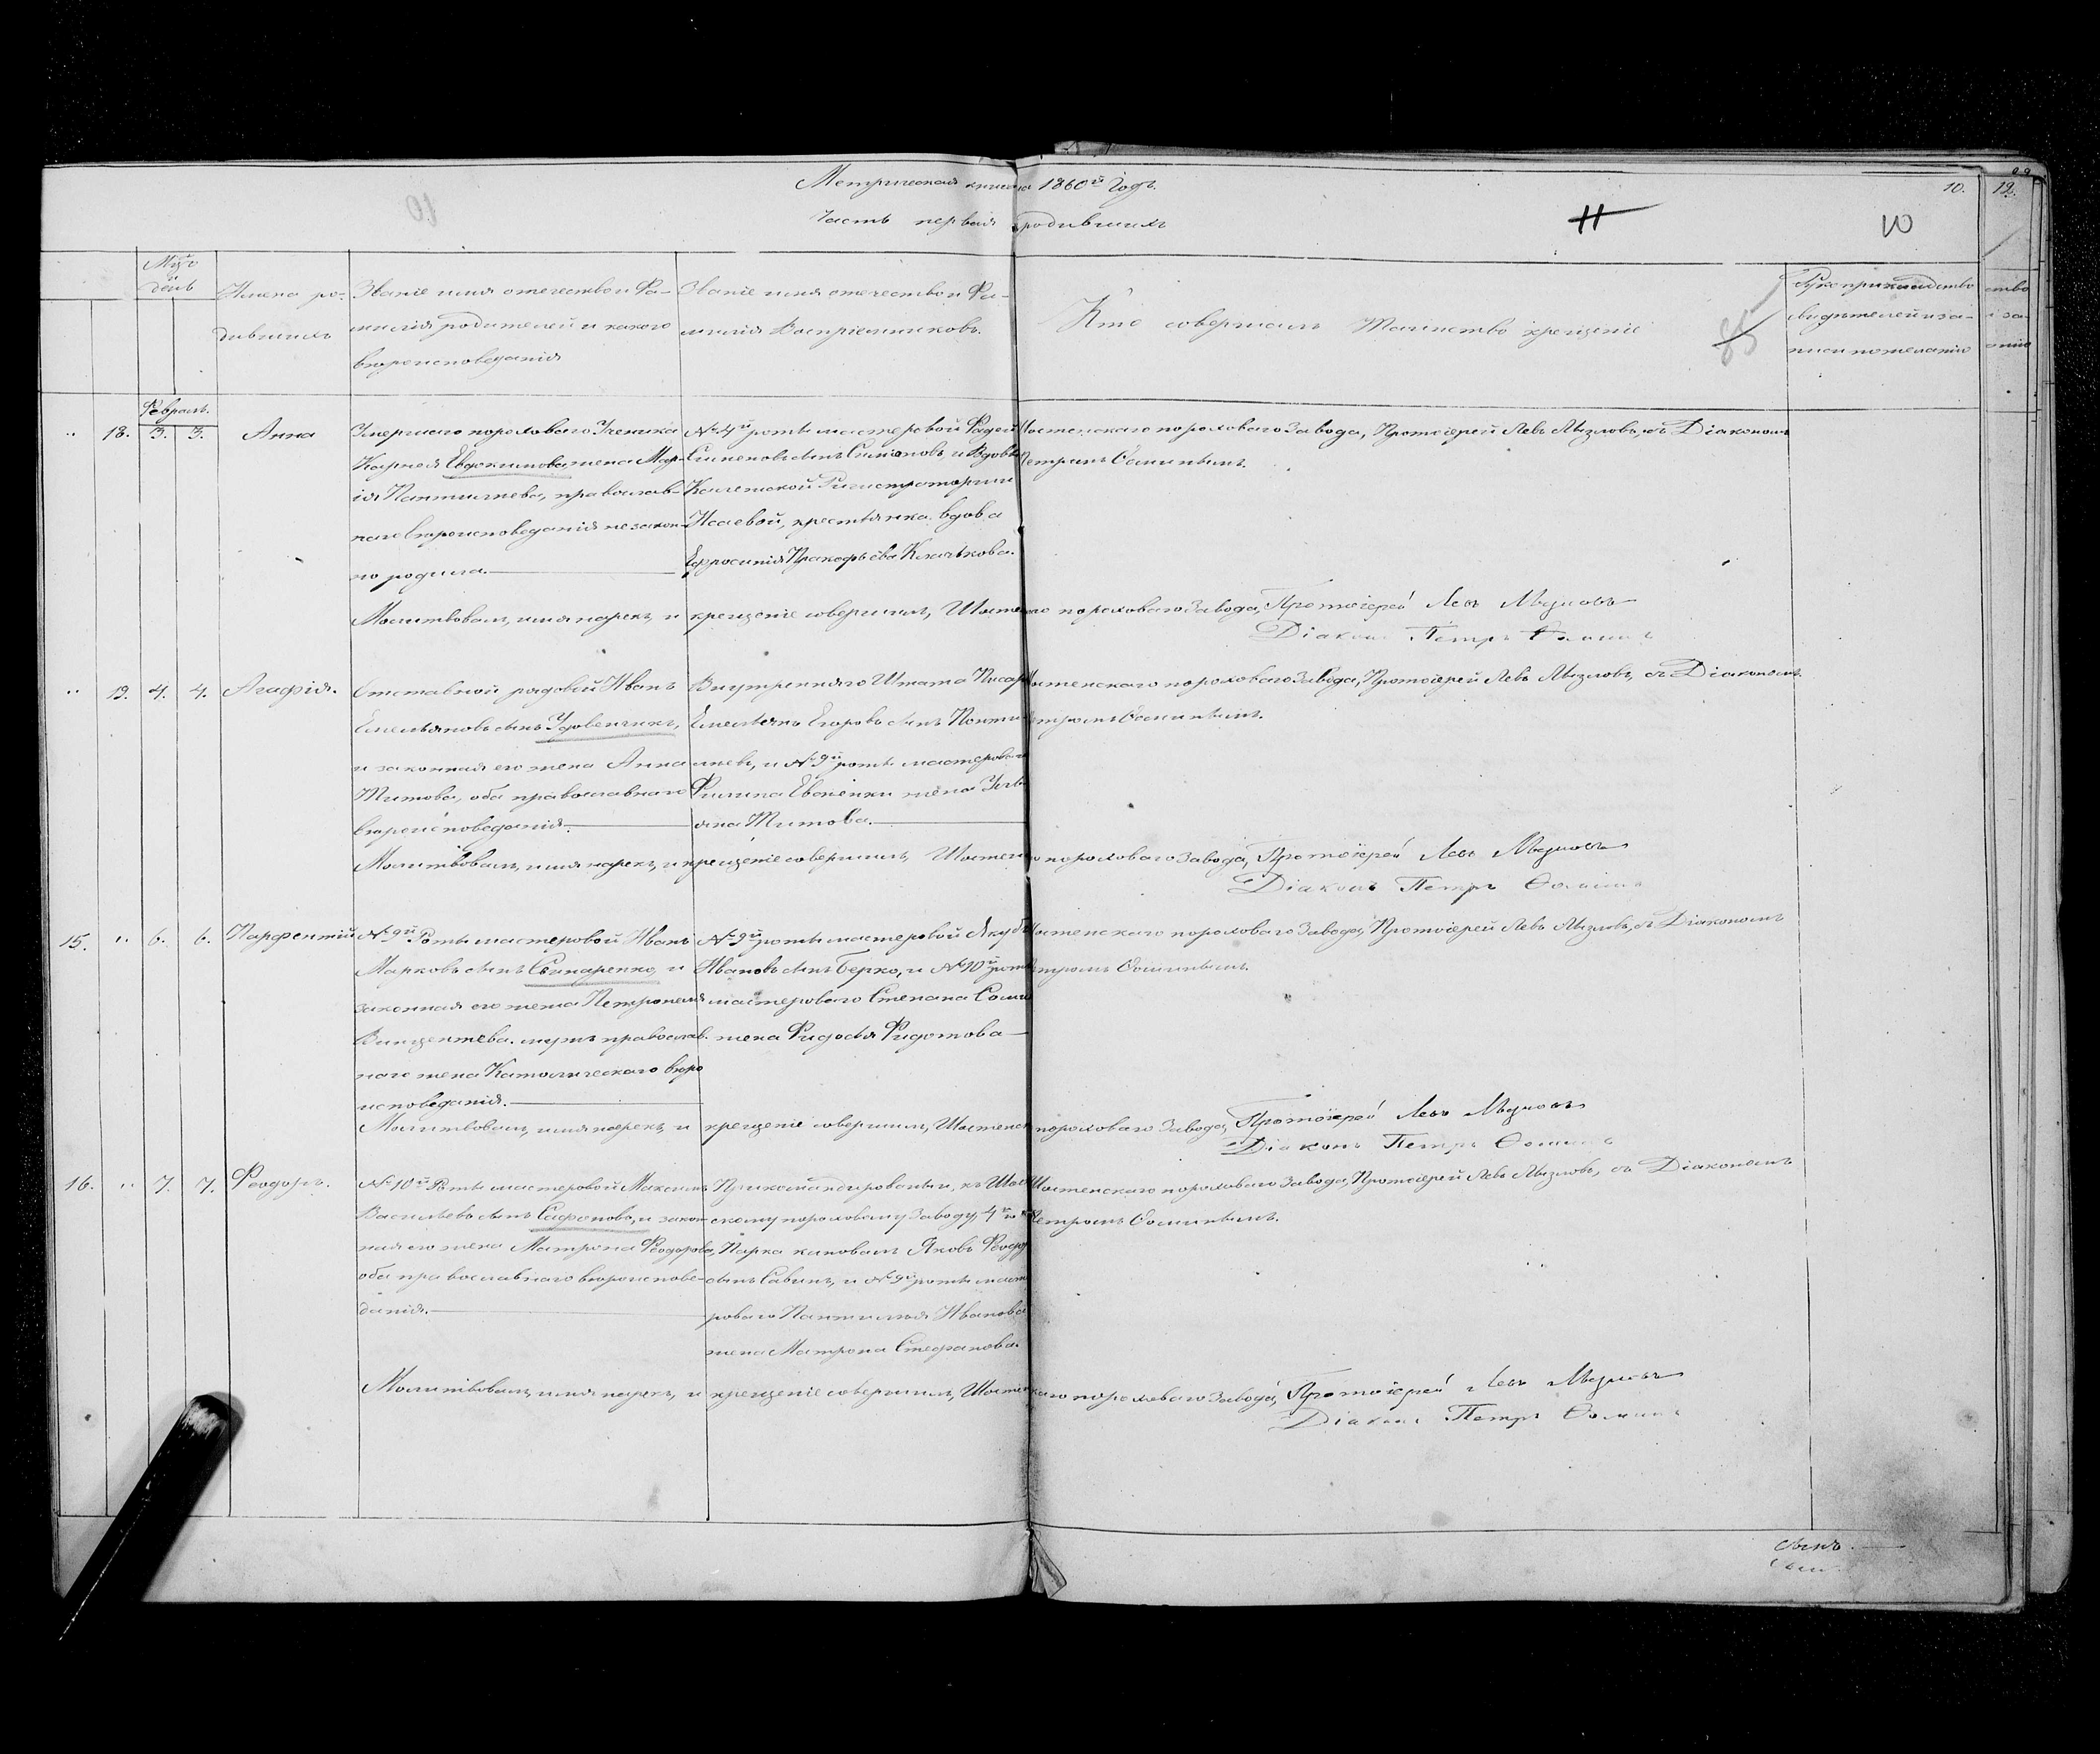 Метрическая книга 1860й Годъ.
10. 12.
Часть первая о родившихъ
11
10
Мцъ и день
Имена родившихъ
Званіе имя отечество и Фамилія родителей и какого вѣроисповеданія
Званіе имя отечество и Фамилія Воспріемниковъ.
Кто совершалъ Таинство крещеніе
85
Рукоприкладство свидѣтелей и записи по желанію
Февраль.
18. 3. 3. Анна
Умершаго пороховаго Ученика
Евдокимова, жена Мар-
ія Пантилѣева, православ-
наго вѣроисповеданія незакон-
но родила.
№ 4й роты мастеровой Фадей
Симеоновъ и Вдовы
Исаевой, крестьянка вдова
Ефросинія Пракофьева
Шостенскаго пороховаго Завода, Протоіерей Левъ Мызловъ, съ Діакономъ
Петромъ Ѳоминымъ.
Молитвовалъ, имя нарекъ, и крещеніе совершилъ, Шостенскаго пороховаго Завода, Протоіерей Левъ Мызловъ
Діаконъ Петръ Ѳоминъ
19. 4. 4. Агафія.
Отставной рядовой Иванъ
Емельяновъ сынъ
и законная его жена Анна
Титова, оба православнаго
вѣроисповеданія.
Внутренняго Штата Писарь
Емельянъ Егоровъ сынъ Панти-
лѣевъ, и № 9й роты мастероваго
Филипа Евсеенки жена Улья-
яна Титова.
Шостенскаго пороховаго Завода, Протоіерей Левъ Мызловъ, съ Діакономъ
Петромъ Ѳоминымъ.
Молитвовалъ, имя нарекъ, и крещеніе совершилъ, Шостенскаго пороховаго Завода, Протоіерей Левъ Мызловъ
Діаконъ Петръ Ѳоминъ
15. 6. 6. Парфентій
№ 9й Роты мастеровой Иванъ
Марковъ сынъ и
законная его жена Петронеля
Винцентева. мужъ православ-
наго жена Католическаго вѣро
исповеданія.
№ 9й роты мастеровой Якубъ
Ивановъ сынъ Берко, и № 10й роты
мастероваго Степана
жена Фидосья Фидотова
Шостенскаго пороховаго Завода, Протоіерей Левъ Мызловъ, съ Діакономъ
Петромъ Ѳоминымъ.
Молитвовалъ, имя нарекъ, и крещеніе совершилъ, Шостенскаго пороховаго Завода, Протоіерей Левъ Мызловъ
Діаконъ Петръ Ѳоминъ
16. 7. 7. Феодоръ.
№ 10й Роты мастеровой Максимъ
Васильевъ сынъ Сафоновъ, и закон-
ная его жена Матрона Феодорова,
оба православнаго вѣроиспове-
данія.
Прикомандированый, къ Шостен-
скому пороховому Заводу, 4го
Парка коновалъ Яковъ Феодоровъ
сынъ Савинъ, и № 9й роты масте-
роваго Пантилѣя Иванова
жена Матрона Стефанова.
Шостенскаго пороховаго Завода, Протоіерей Левъ Мызловъ, съ Діакономъ
Петромъ Ѳоминымъ.
Молитвовалъ, имя нарекъ, и крещеніе совершилъ, Шостенскаго пороховаго Завода, Протоіерей Левъ Мызловъ
Діаконъ Петръ Ѳоминъ
сынъ.